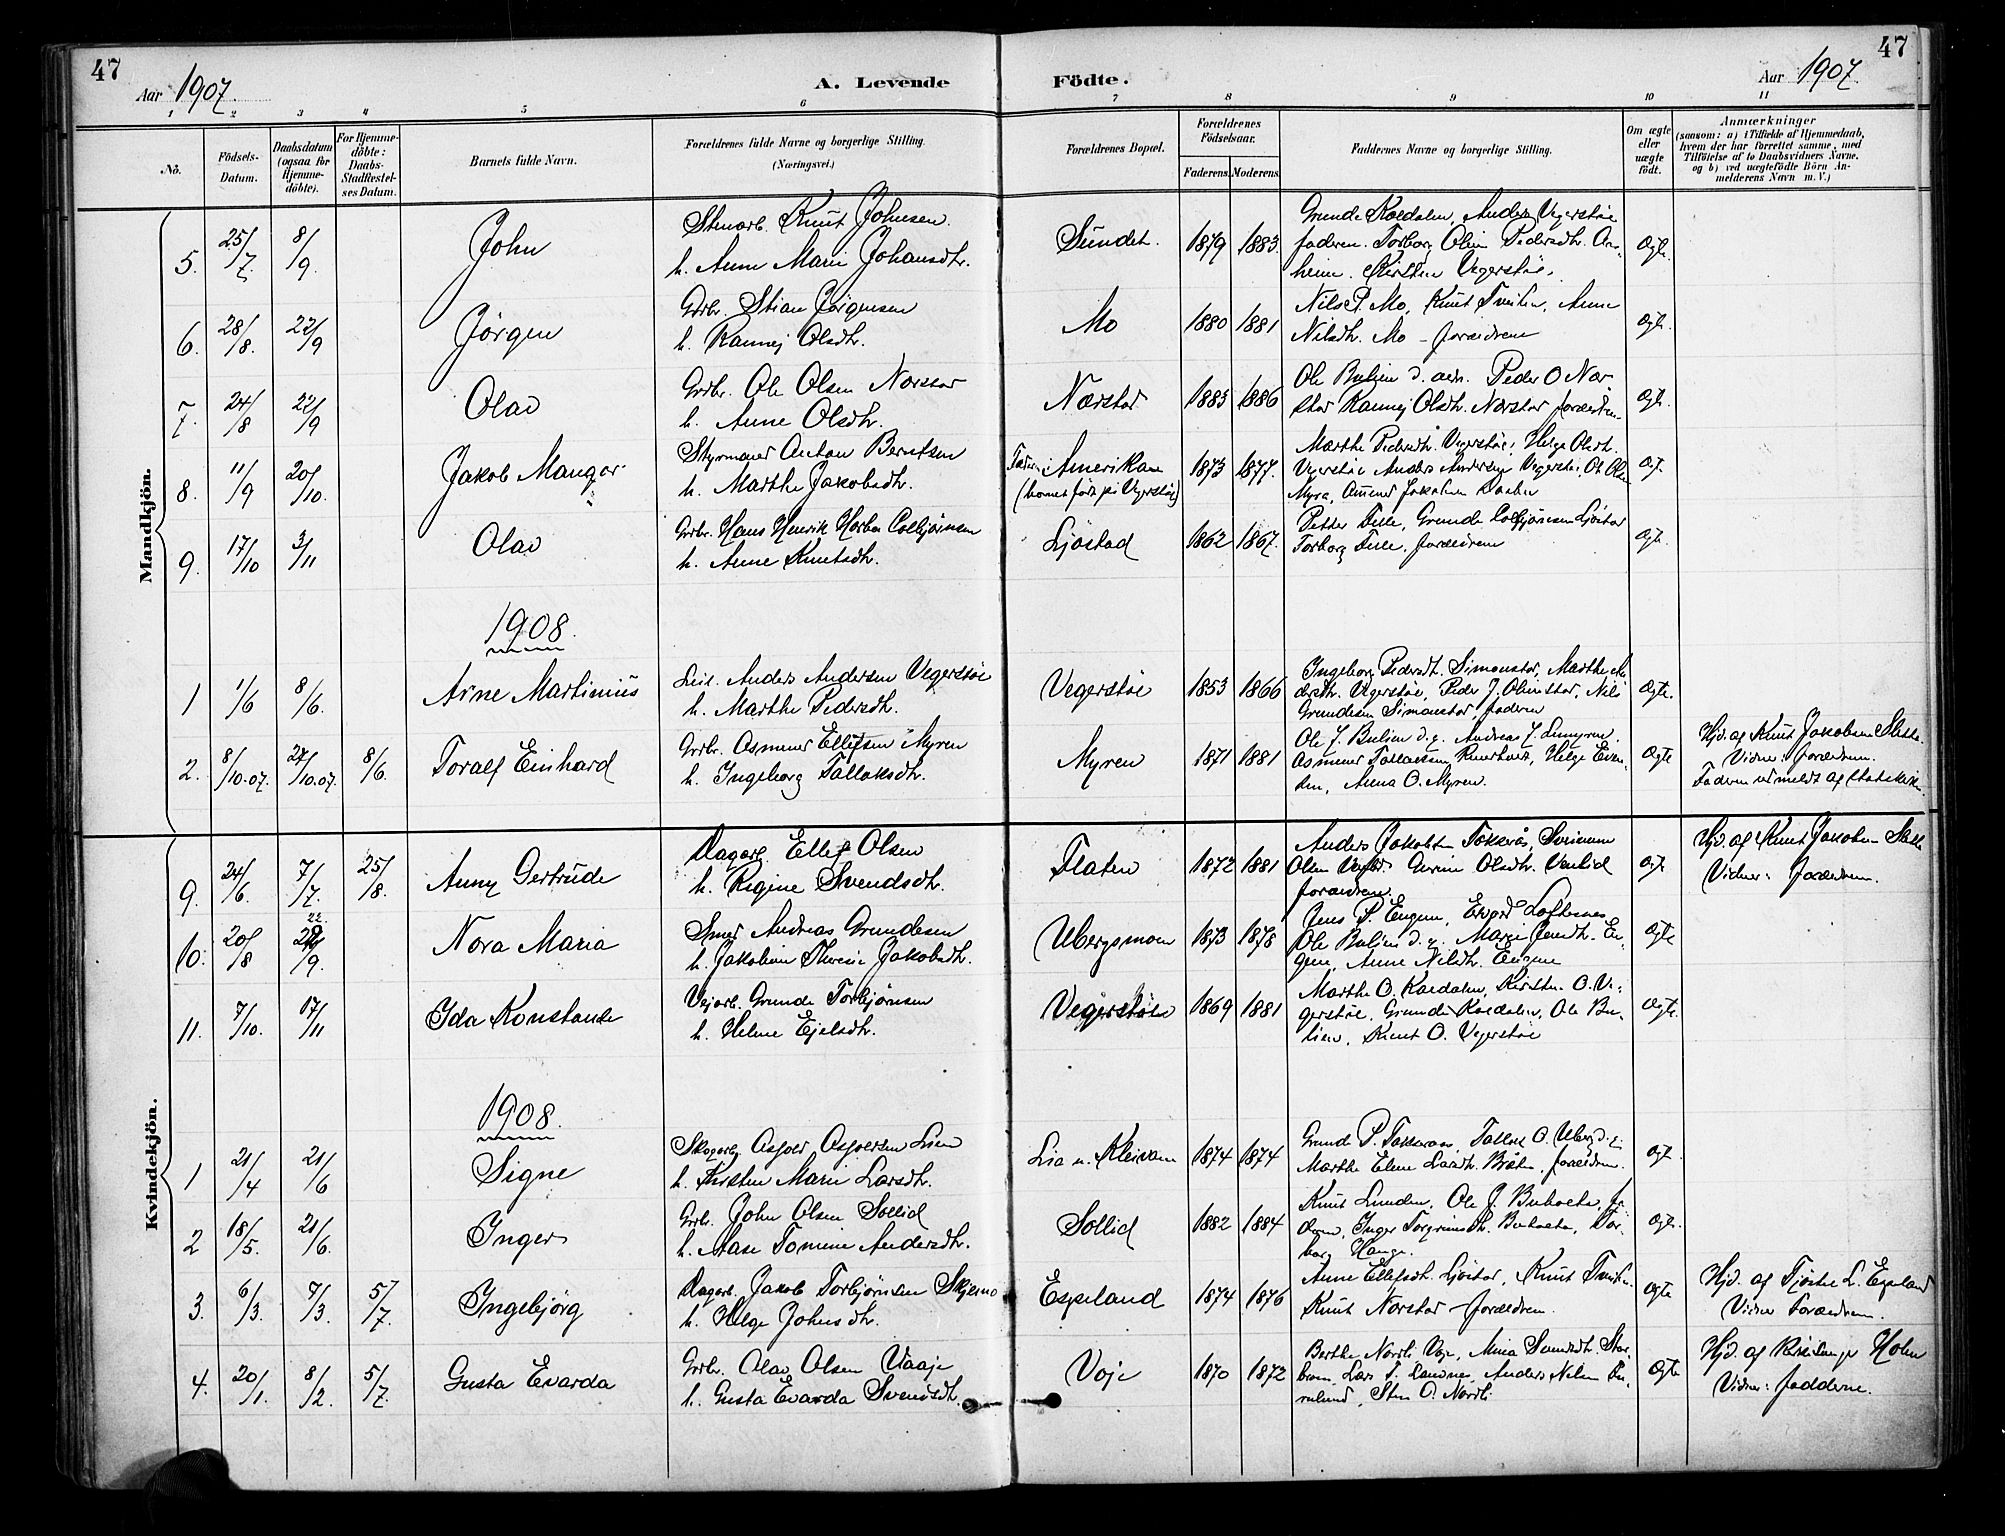 47
Aar 1907.
A. Levende Födte.
Aar 1907.
47
1 2 3 4 5 6 7 8 9 10 11
No.
Födsels-Datum.
Daabsdatum (ogsaa for Hjemmedöbte).
For Hjemmedöbte: Daabs-Stadfæstelses Datum.
Barnets fulde Navn.
Forældrenes fulde Navne og borgerlige Stilling. (Næringsvei.)
Forældrenes Bopæl.
Forældrenes Födselsaar.
Faderens. Moderens.
Faddernes Navne og borgerlige Stilling.
Om ægte eller uægte födt.
Anmærkninger (saasom: a) i Tilfælde af Hjemmedaab, hvem der har forrettet samme, med Tilföielse af to Daabsvidners Navne, og b) ved uægtefödte Börn Anmelderens Navn m. V.)
Mandkjön.
5. 25/7. 8/9. John
Stenarb. Knut Johnsen
h. Anne Marie Johansdtr.
Sundet. 1879 1883.
Grunde Kaedalen, Anders Vegerstøe
faderen. Torborg Olin Pedersdtr. Aa-
heim. Kirsten Vegerstøe.
Ægte.
6. 28/8. 22/9 Jørgen
Grbr. Stian Jørgensen
h. Rannej Olsdtr.
Mo 1880 1881
Nils P. Mo, Knut Tveiten, Anne
Nilsdtr. Mo - forældrene
Ægte.
7. 24/8 22/9 Olav
Grbr. Ole Olsen Nærstar
h. Anne Olsdtr.
Nærstar 1883 1886
Ole Bulien d. æ. Peder O Nær-
star Rannej Olsdtr. Nærstar forældrene
Ægte.
8. 11/9 20/10. Jakob Mangor
Styrmand Anton Berntsen
h. Marthe Jakobsdtr.
Faderen: Amerika
(barnet født på Vegerstøe)
1873 1877.
Marthe Pedersdtr. Vegerstøe, Helge Olsdtr.
Vegerstøe Anders Andersen Vegerstøe, Ole Olsen
Myra, Jakobsen
Ægt.
9. 17/10 3/11 Olav
Grbr. Hans Henrik Colbjørnsen
h. Anne Knutsdtr.
Ljøstad 1862 1867.
Petter Felle, Grunde Colbjørnsen Ljøstar
Torborg Felle, forældrene
Ægte.
1908.
1 1/6 8/6. Arne Martinius
Leil. Anders Andersen Vegerstøe
h. Marthe Pedersdtr.
Vegerstøe 1853 1866
Ingeborg Pedersdtr. Simonstar, Marthe An-
dersdtr. Vegerstøe, Peder J. Simonstar, Nils
Grundesen Simonstar, faderen
Ægte.
2. 8/10.07. 27/10.07. 8/6. Toralf Einhard
Grbr. Asmund Ellefsen Myren
h. Ingeborg Tallaksdtr.
Myren 1871 1881
Ole J. Buliene d. y. Andreas J. Lunmyren
Asmund Tallaksen, Helge Even-
den, Anna O. Myren.
Ægte
Hjd. af Knut Jakobsen
Vidner: forældrene.
Faderen udmeldt af statskirken.
Kvindekjön.
9. 24/6. 7/7. 25/8. Anny Gertrude
Dagarb. Ellef Olsen
h. Regine Svendsdtr.
Flaten 1872 1881
Anders Jakobsen Tokseraas, Sveinum
Olsen Gurine Olsdtr. Vaulid
forældrene.
Ægte
Hjd. af Knut Jakobsen
Vidner: forældrene.
10. 20/8 22/9. Nora Maria
Smed Andreas Grundesen
h. Jakobine Theresie Jakobsdtr.
Ubergsmoen 1873 1878
Jens P. Engene, Edvard Loftesnes
Ole Buliene d. y. Marge Jensdtr. En-
gene, Anne Nilsdtr. Engene
Ægte
11. 7/10. 17/11 Ida Konstanse
Vejarb. Grunde Torbjørnsen
h. Helene Ejelsdtr.
Vegerstøe 1869 1881
Marthe O. Kaedalen, Kirsten O. Ve-
gerstøe, Grunde Kaedalen, Ole Bu-
lien, Knut O. Vegerstøe
Ægte.
1908.
1 21/4 21/6 Signe
Skogarb. Asjver Asjversen Lien
h. Kirsten Marie Larsdtr.
Lia u. Kleivane 1874 1874
Grunde P. Tokseraas, Tallak O. Uberg d. y.
Marthe Elene Larsdtr. Bråten, forældrene.
Ægt.
2 18/5. 21/6. Inger
Grbr. John Olsen Sollid
h. Aase Tomine Andersdtr.
Sollid 1882 1884
Knut Lunden, Ole J. Buhaata, fa-
deren, Inger Torgrimsdtr. Buhaata, Tor-
borg Hauge.
Ægte.
3. 6/3. 7/3. 5/7. Ingebjörg
Dagarb. Jakob Torbjørnsen Skjemo
h. Helge Johnsdtr.
Espeland 1874 1876
Anne Ellefsdtr. Ljøstar, Knut Tveiten
Knut Norstar - forældrene.
Ægte
Hjd. af Tjøstel L. Espeland
Vidner Forældrene.
4. 20/1. 8/2. 5/7. Gusta Evarda
Grbr. Olav Olsen Vaaje
h. Gusta Evarda Svendsdtr.
Voje 1870 1872
Berthe Nordli Voje, Mina Svendsdtr. Stor-
brom, Lars T. Landne, Anders Nilsen Fu-
rulund, Sten O. Nordli
Ægte
Hjd. af Holm
Vidner: fadderne.